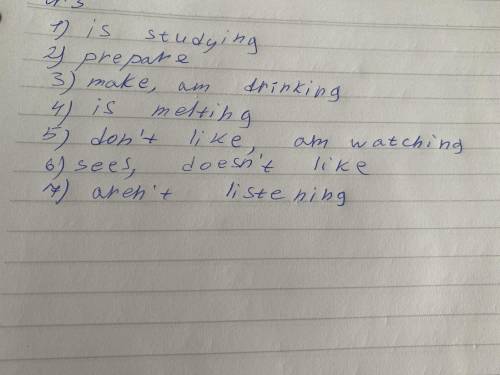 1) is studying
2) prepare
3) make, am drinking
4) is melting
5) don't like, am watching
6) sees, doesn't like
7) aren't listening